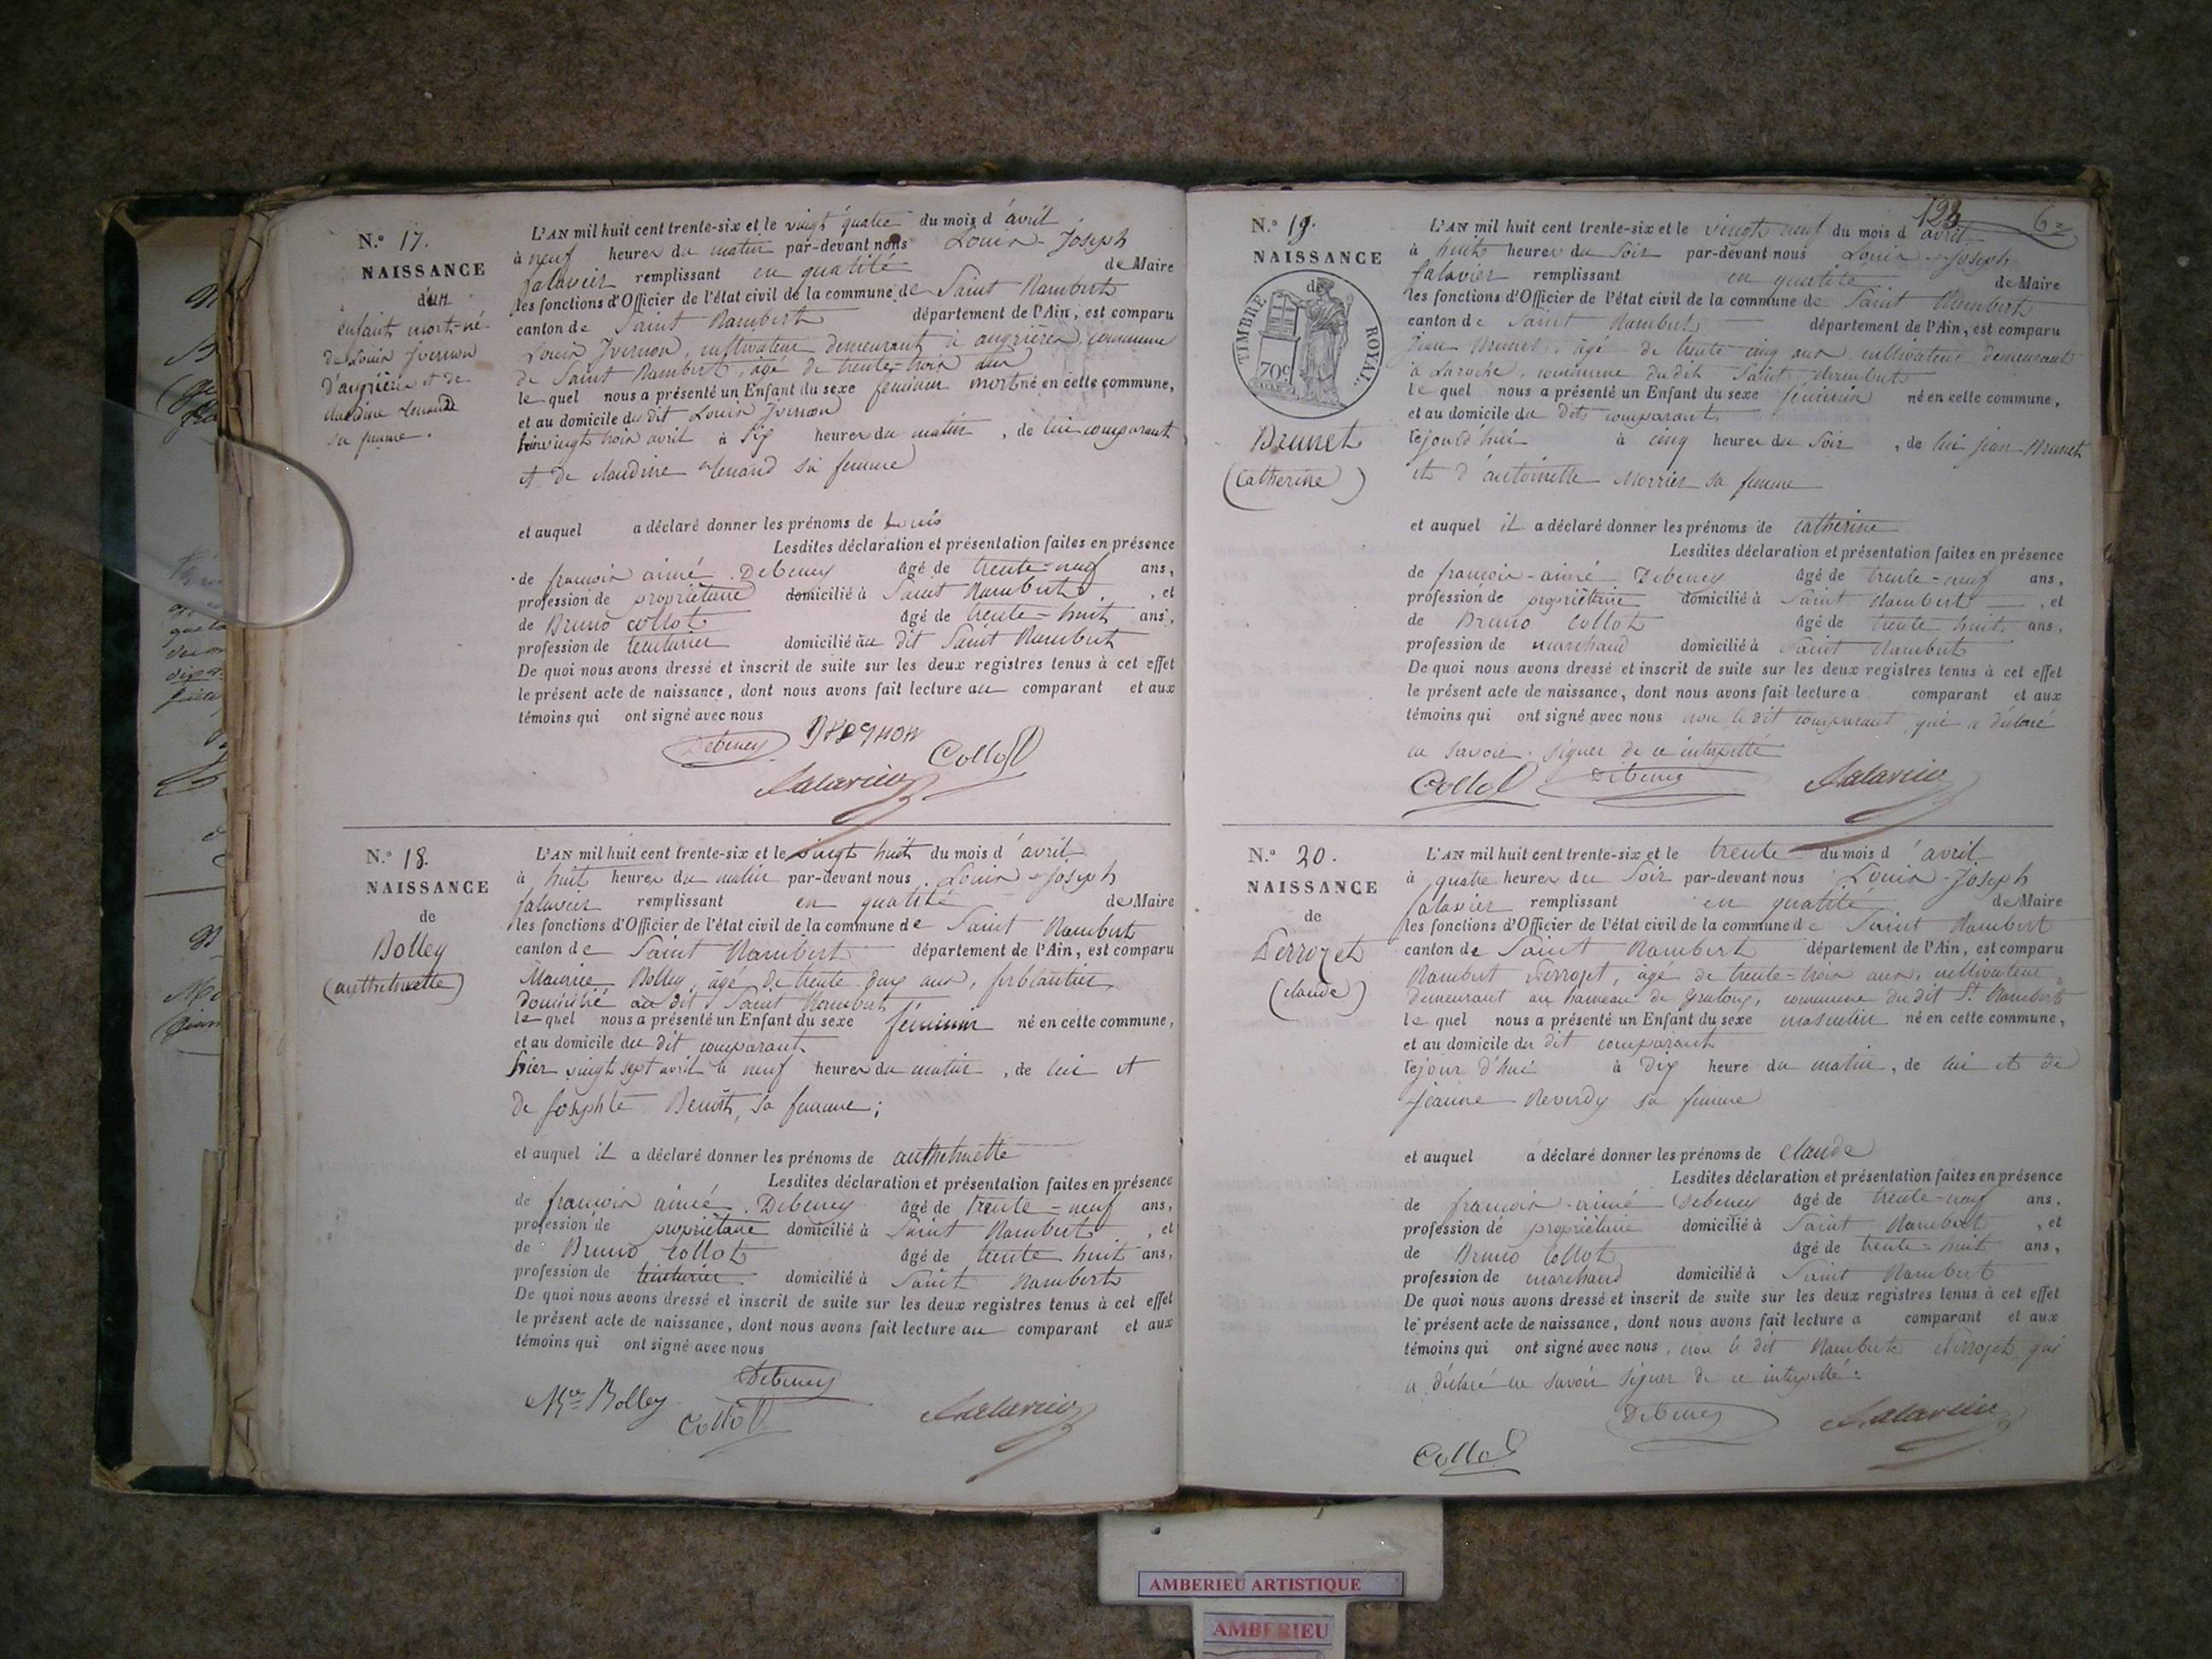 N.º 17.
NAISSANCE
d'un
enfant mort-né
de Louis Jvernon
d'angrières et de
claudine
sa femme.
L'AN mil huit cent trente-six et le vingt quatre du mois d'avril
à neuf heures du matin par-devant nous Louis-Joseph
falavier remplissant en qualité de Maire
les fonctions d'Officier de l'état civil de la commune de Saint Rambert
canton de Saint Rambert département de l'Ain, est comparu
Louis Jvernon, cultivateur demeurant à angrières, commune
de Saint Rambert, âgé de trente-trois ans
le quel nous a présenté un Enfant du sexe féminin mort né en cette commune,
et au domicile du dit Louis Jvernon
hier vingt trois avril à six heures du matin, de lui comparant
et de claudine sa femme
et auquel a déclaré donner les prénoms de Louis
Lesdites déclaration et présentation faites en présence
de françois aimé Debeney âgé de trente-neuf ans,
profession de propriétaire domicilié à Saint Rambert, et
de Bruno Collot âgé de trente-huit ans,
profession de teinturier domicilié au dit Saint Rambert
De quoi nous avons dressé et inscrit de suite sur les deux registres tenus à cet effet
le présent acte de naissance, dont nous avons fait lecture au comparant et aux
témoins qui ont signé avec nous
Debeney Collot
falavier
N.º 18.
NAISSANCE
de
Bolley
(anthelmette)
L'AN mil huit cent trente-six et le vingt huit du mois d'avril
à huit heures du matin par-devant nous Louis-Joseph
falavier remplissant en qualité de Maire
les fonctions d'Officier de l'état civil de la commune de Saint Rambert
canton de Saint Rambert département de l'Ain, est comparu
Maurice Bolley, âgé de trente deux ans, ferblantier,
domicilié au dit Saint Rambert
le quel nous a présenté un Enfant du sexe féminin né en cette commune,
et au domicile du dit comparant
hier vingt sept avril à neuf heures du matin, de lui et
de Josephte Benoît, sa femme;
et auquel il a déclaré donner les prénoms de anthelmette
Lesdites déclaration et présentation faites en présence
de françois aimé Debeney âgé de trente-neuf ans,
profession de propriétaire domicilié à Saint Rambert, et
de Bruno Collot âgé de trente huit ans,
profession de teinturier domicilié à Saint Rambert
De quoi nous avons dressé et inscrit de suite sur les deux registres tenus à cet effet
le présent acte de naissance, dont nous avons fait lecture au comparant et aux
témoins qui ont signé avec nous
Debeney
Mce Bolley Collot falavier
123 6
N.º 19.
NAISSANCE
de
TIMBRE ROYAL.
70 c
Brunet
(Catherine)
L'AN mil huit cent trente-six et le vingt neuf du mois d'avril
à huit heures du soir par-devant nous Louis-Joseph
falavier remplissant en qualité de Maire
les fonctions d'Officier de l'état civil de la commune de Saint Rambert
canton de Saint Rambert département de l'Ain, est comparu
Jean Brunet, âgé de trente cinq ans cultivateur demeurant
à Laroche, commune dudit Saint Rambert
le quel nous a présenté un Enfant du sexe féminin né en cette commune,
et au domicile du dit comparant
cejourd'hui à cinq heures du soir, de lui jean Brunet
et d'antoinette Morrier sa femme
et auquel il a déclaré donner les prénoms de catherine
Lesdites déclaration et présentation faites en présence
de françois-aimé Debeney âgé de trente-neuf ans,
profession de propriétaire domicilié à Saint Rambert, et
de Bruno Collot âgé de trente huit ans,
profession de marchand domicilié à Saint Rambert
De quoi nous avons dressé et inscrit de suite sur les deux registres tenus à cet effet
le présent acte de naissance, dont nous avons fait lecture a comparant et aux
témoins qui ont signé avec nous non le dit comparant qui a déclaré
ne savoir signer de ce interpellé
Collot Debeney falavier
N.º 20.
NAISSANCE
de
Perrozet
(claude)
L'AN mil huit cent trente-six et le trente du mois d'avril
à quatre heures du soir par-devant nous Louis-Joseph
falavier remplissant en qualité de Maire
les fonctions d'Officier de l'état civil de la commune de Saint Rambert
canton de Saint Rambert département de l'Ain, est comparu
Rambert Perrozet, âgé de trente-trois ans, cultivateur
demeurant au hameau de commune du dit St. Rambert
le quel nous a présenté un Enfant du sexe masculin né en cette commune,
et au domicile du dit comparant
cejour d'hui à dix heure du matin, de lui et de
jeanne Reverdy sa femme
et auquel a déclaré donner les prénoms de claude
Lesdites déclaration et présentation faites en présence
de françois-aimé Debeney âgé de trente-neuf ans,
profession de propriétaire domicilié à Saint Rambert, et
de Bruno Collot âgé de trente-huit ans,
profession de marchand domicilié à Saint Rambert
De quoi nous avons dressé et inscrit de suite sur les deux registres tenus à cet effet
le présent acte de naissance, dont nous avons fait lecture a comparant et aux
témoins qui ont signé avec nous, non le dit Rambert Perrozet qui
a déclaré ne savoir signer de ce interpellé.
Debeney falavier
Collot
AMBERIEU ARTISTIQUE
AMBERIEU